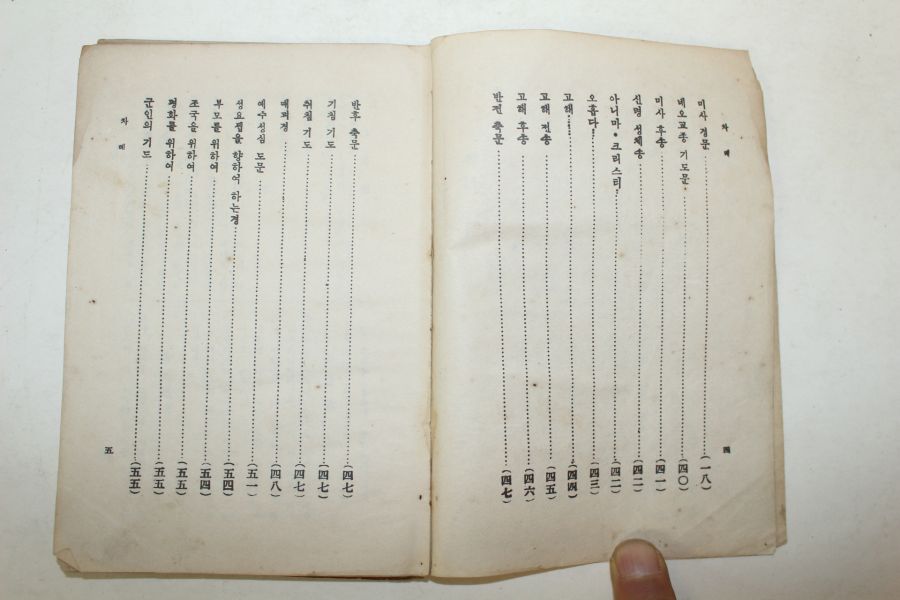 차례
미사 경문 (一八)
네오교종 기도문 (四〇)
미사 후송 (四一)
신령 성체송 (四二)
아니마·크리스티! (四二)
오홉다! (四三)
고해 (四四)
고해 전송 (四五)
고해 후송 (四六)
반전 축문 (四七)
四
반후 축문 (四七)
기침 기도 (四七)
취침 기도 (四七)
매괴경 (四八)
예수성심 도문 (五一)
성요셉을 향하여 하는경 (五四)
부모를 위하여 (五四)
조국을 위하여 (五五)
평화를 위하여 (五五)
군인의 기도 (五五)
차례
五